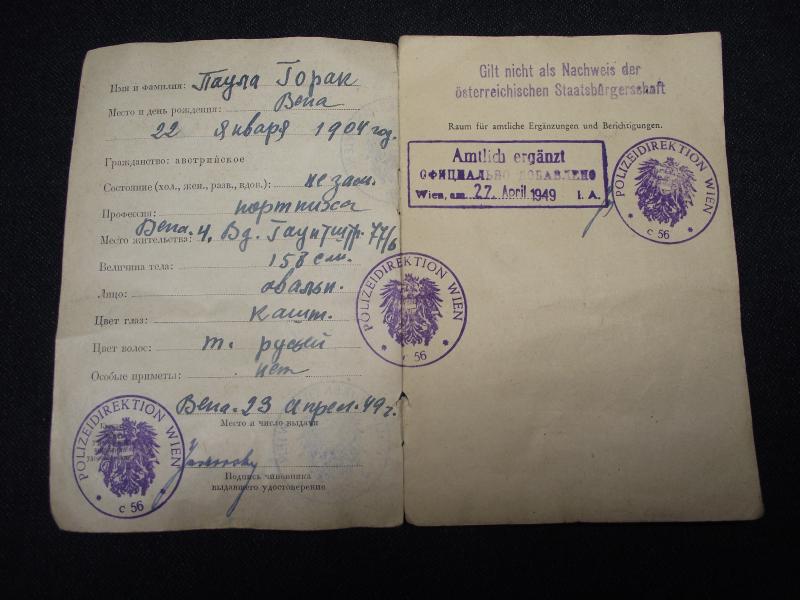 Имя и фамилия: Паула Горак
Место и день рождения: Вена
22 января 1904 год.
Гражданство: австрийское
Состояние (хол., жен., разв., вдов.): незам.
Профессия: портниха
Место жительства: Вена. 4. Вд. Гауптштр. 77/6
Величина тела: 158 см.
Лицо: овальн.
Цвет глаз: кашт.
Цвет волос: т. русый
Особые приметы: нет
Вена. 23 апрел. 49 г.
Место и число выдачи
Подпись чиновника
выдавшего удостоверение
POLIZEIDIREKTION WIEN
c 56
POLIZEIDIREKTION WIEN
c 56
Gilt nicht als Nachweis der
österreichischen Staatsbürgerschaft
Raum für amtliche Ergänzungen und Berichtigungen.
Amtlich ergänzt
ОФИЦИАЛЬНО ДОБАВЛЕНО
Wien, am 27. April 1949 I. A.
POLIZEIDIREKTION WIEN
c 56